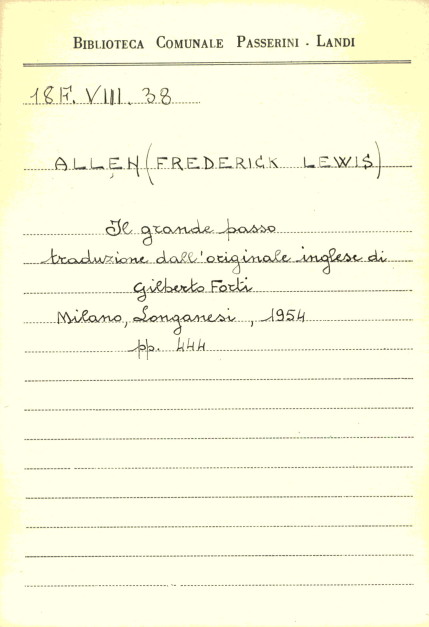 BIBLIOTECA COMUNALE PASSERINI - LANDI
18F. VIII. 38
ALLEN (FREDERICK LEWIS)
Il grande passo
traduzione dall'originale inglese di
Gilberto Forti
Milano, Longanesi, 1954
pp. 444